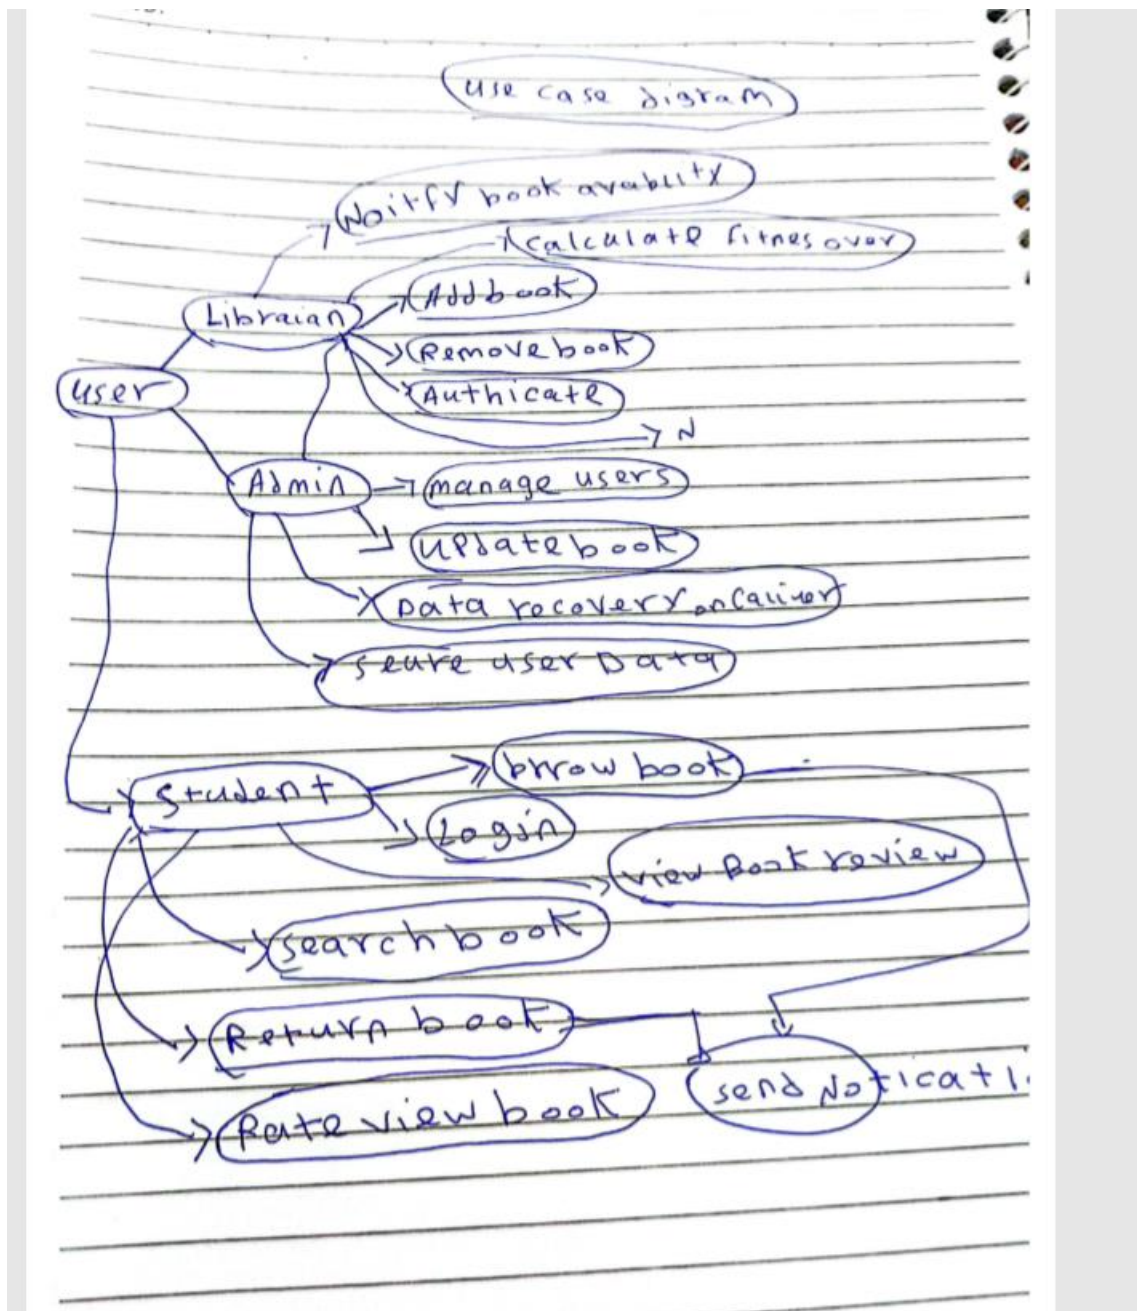 use case digram
Noitfy book avablity
calculate fitnes over
Add book
Libraian
Remove book
user
Authicate
N
Admin
manage users
update book
Data recovery on
seure user Data
brrow book
student
Login
view Book review
search book
Return book
send Noticati
Rate view book